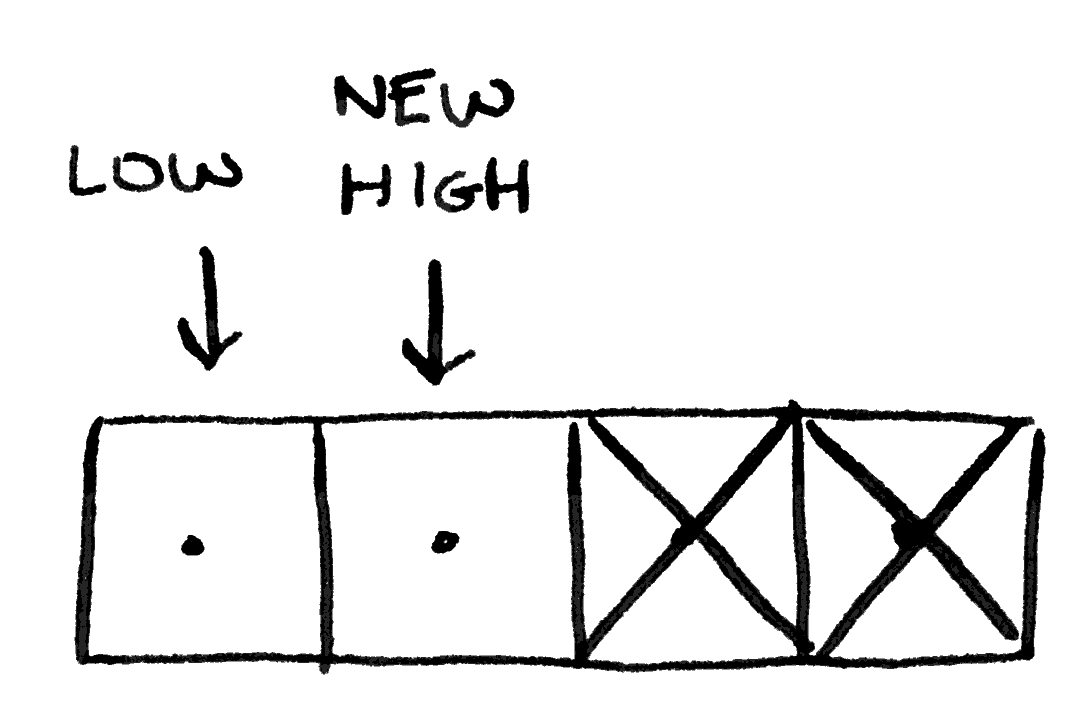 LOW
NEW
HIGH